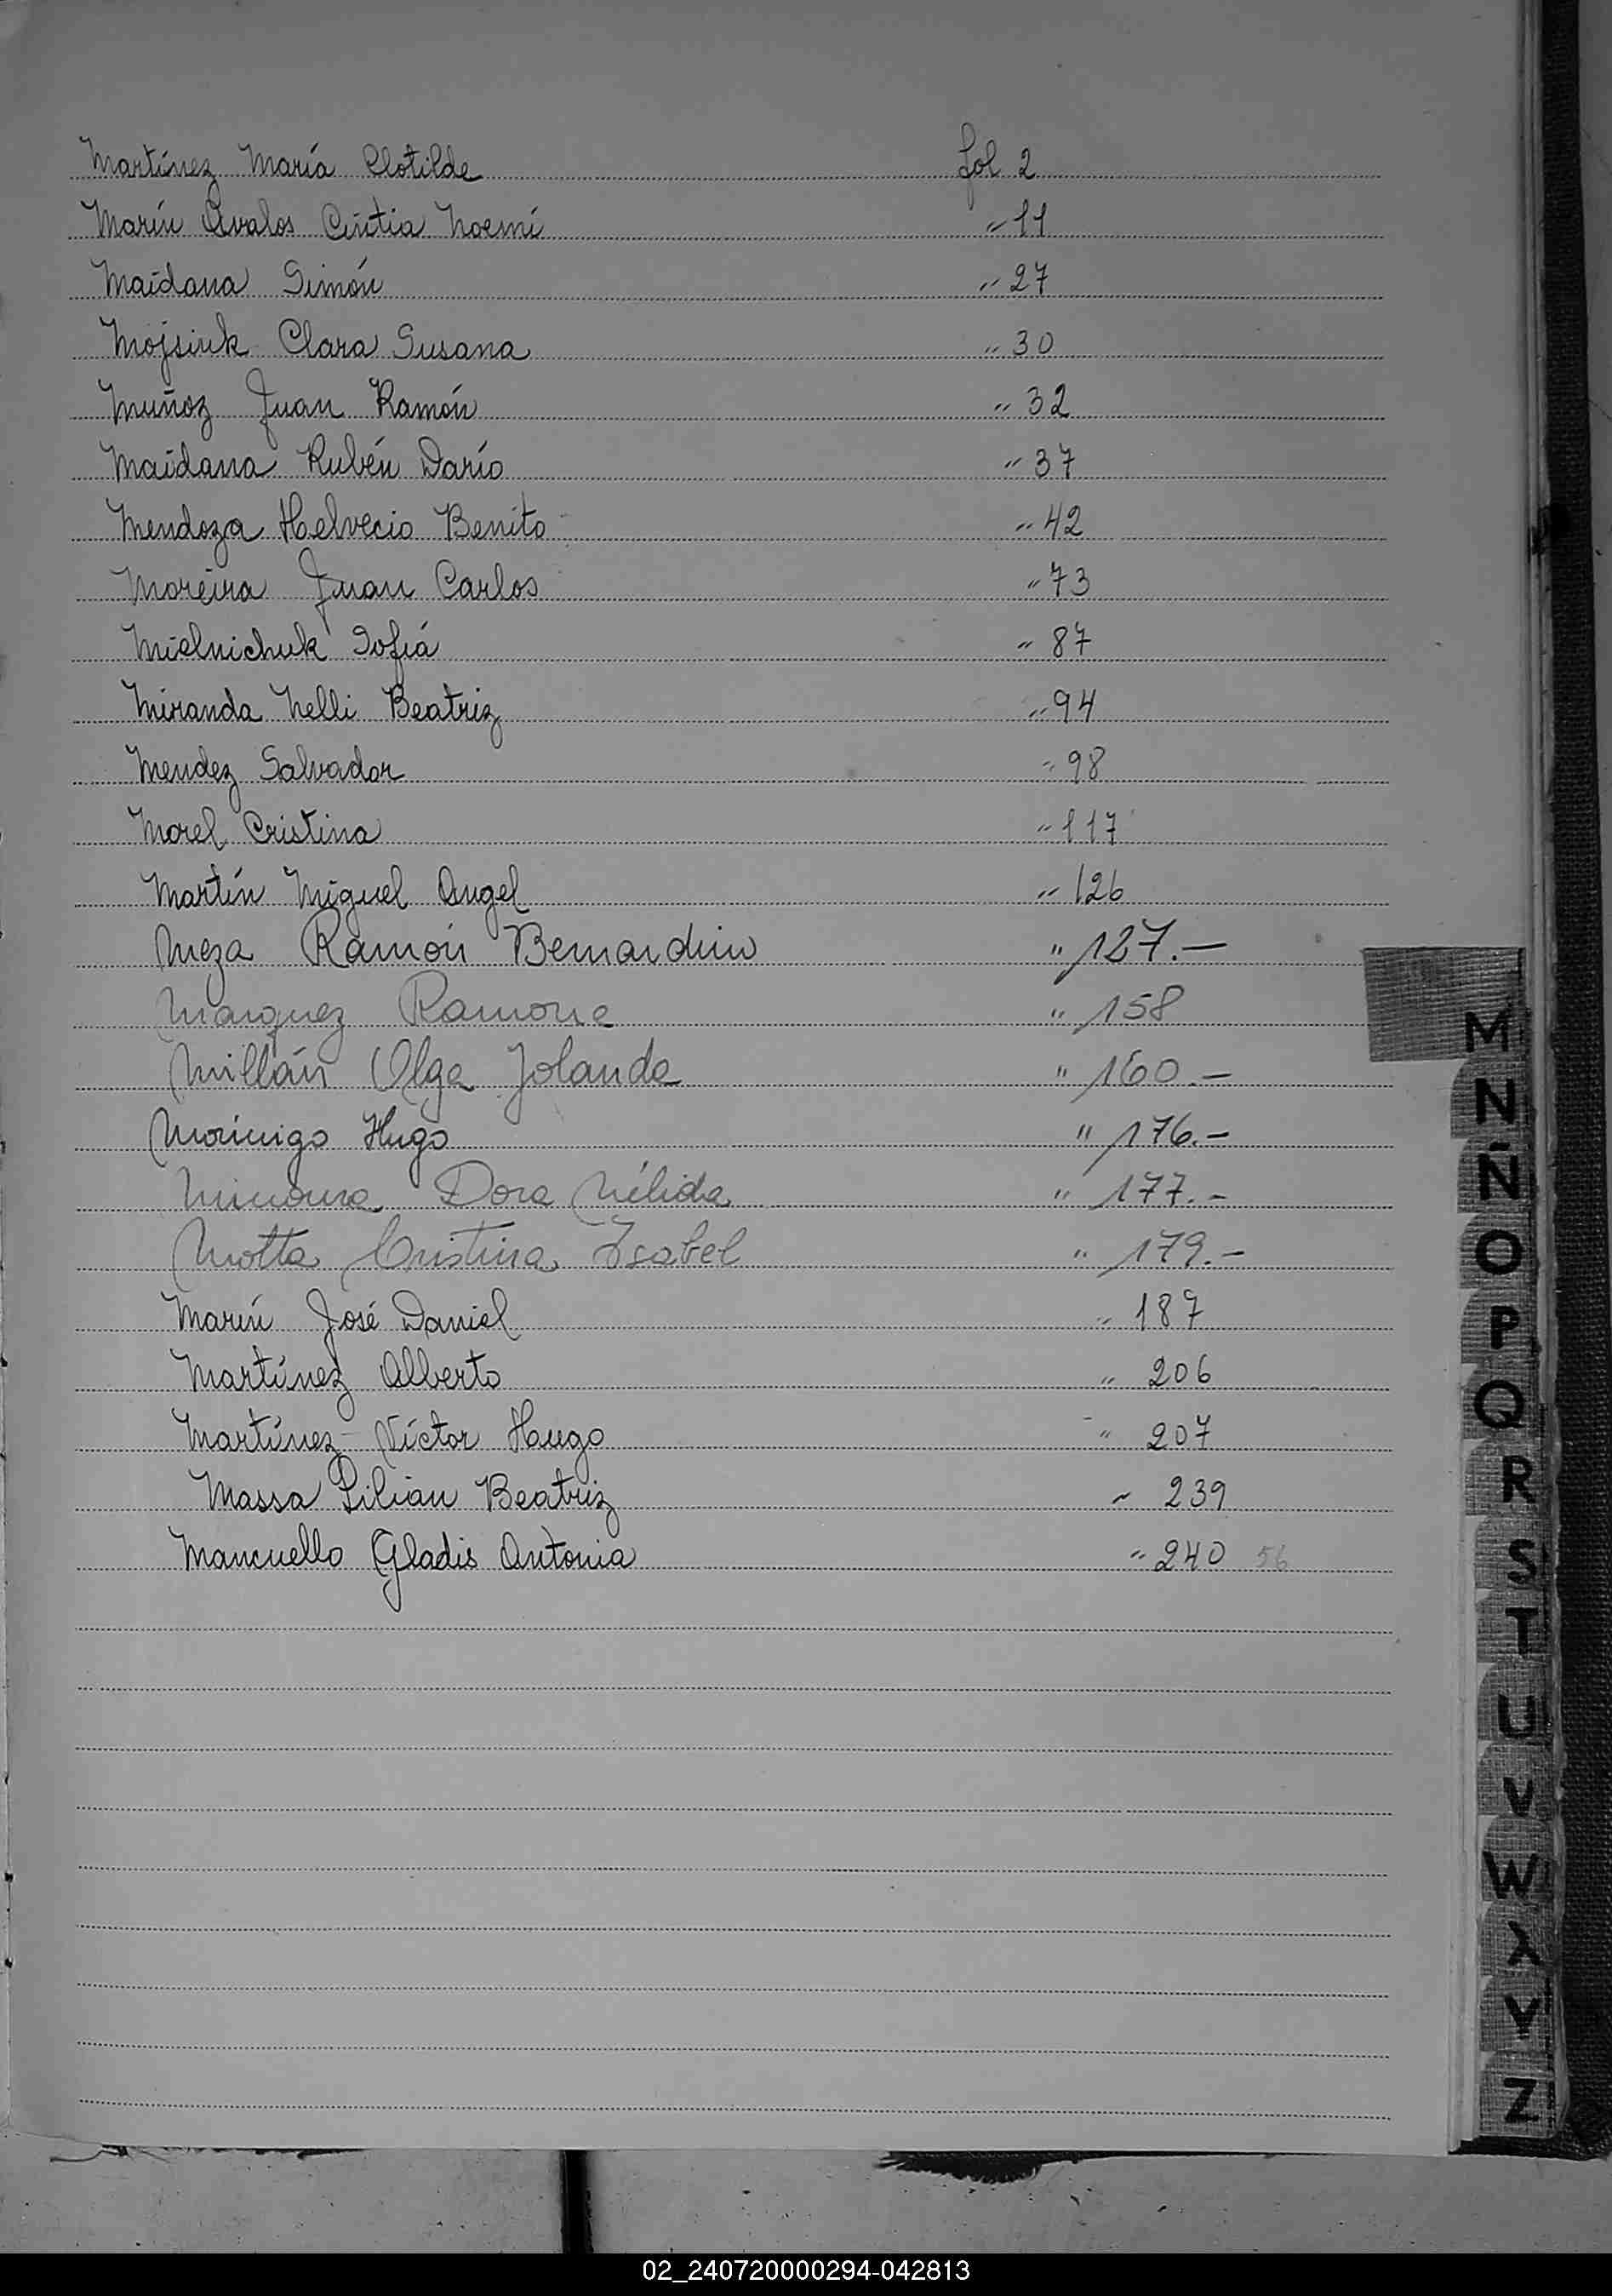 Martínez María Clotilde fol 2
Marín Avalos Cintia Noemí " 11
Maidana Simón " 27
Mojsiuk Clara Susana " 30
Muñoz Juan Ramón " 32
Maidana Rubén Darío " 37
Mendoza Helvecio Benito " 42
Moreira Juan Carlos " 73
Mielnichuk Sofiá " 87
Miranda Nelli Beatriz " 94
Mendez Salvador " 98
Morel Cristina " 117
Martín Miguel Angel " 126
Meza Ramón Bernardino " 127.—
Marquez Ramona " 158
Millán Olga Jolanda " 160.—
Morinigo Hugo " 176.—
Dora Nélida " 177.—
Motta Cristina Isabel " 179.—
Marín José Daniel " 187
Martínez Alberto " 206
Martínez Víctor Hugo " 207
Massa Lilian Beatriz " 239
Mancuello Gladis Antonia " 240 56
M
N
Ñ
O
P
Q
R
S
T
U
V
W
X
Y
Z
02_240720000294-042813